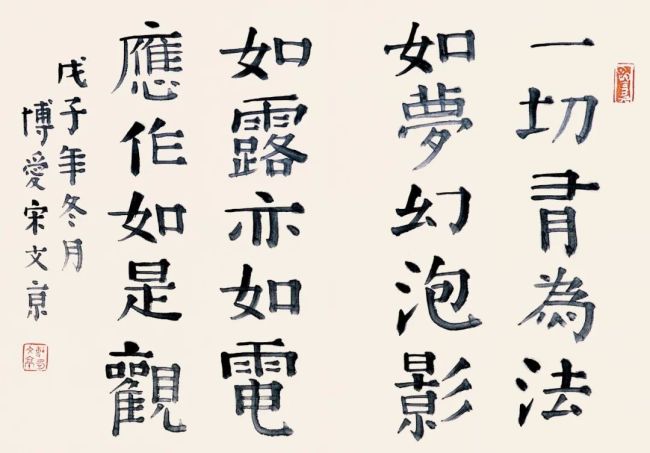 一切有為法
如夢幻泡影
如露亦如電
應作如是觀
戊子年冬月
博愛宋文京